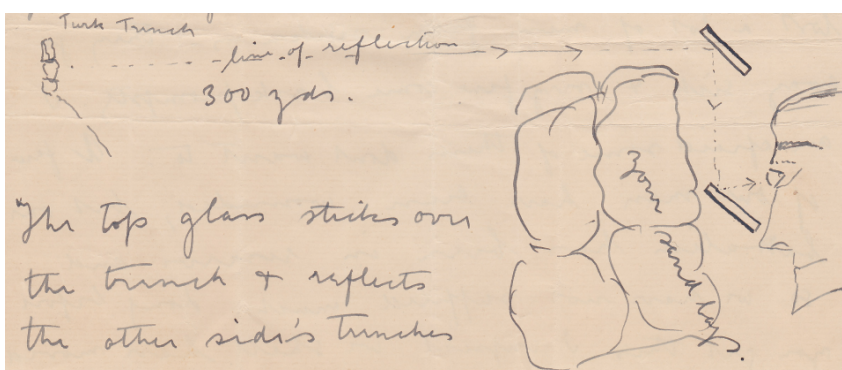 Turk Trench
line of reflection
300 yds.
Your
sand bags.
"The top glass sticks over
the trench & reflects
the other side's trenches